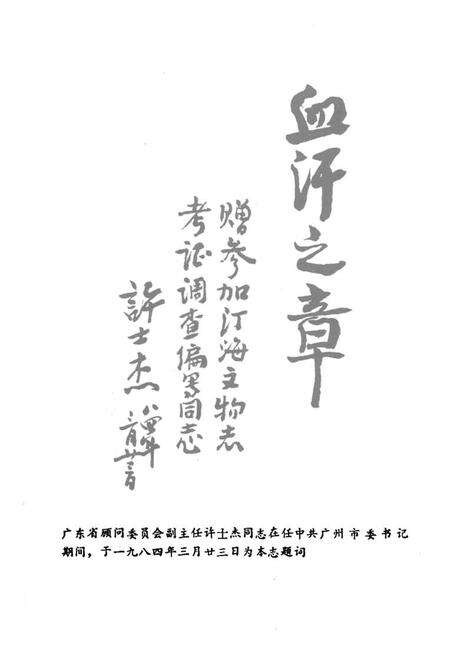 血汗之章
赠参加汀海文物志
考证调查编写同志
許士杰
八四年
三月廿三日
广东省顾问委员会副主任许士杰同志在任中共广州市委书记
期间，于一九八四年三月廿三日为本志题词